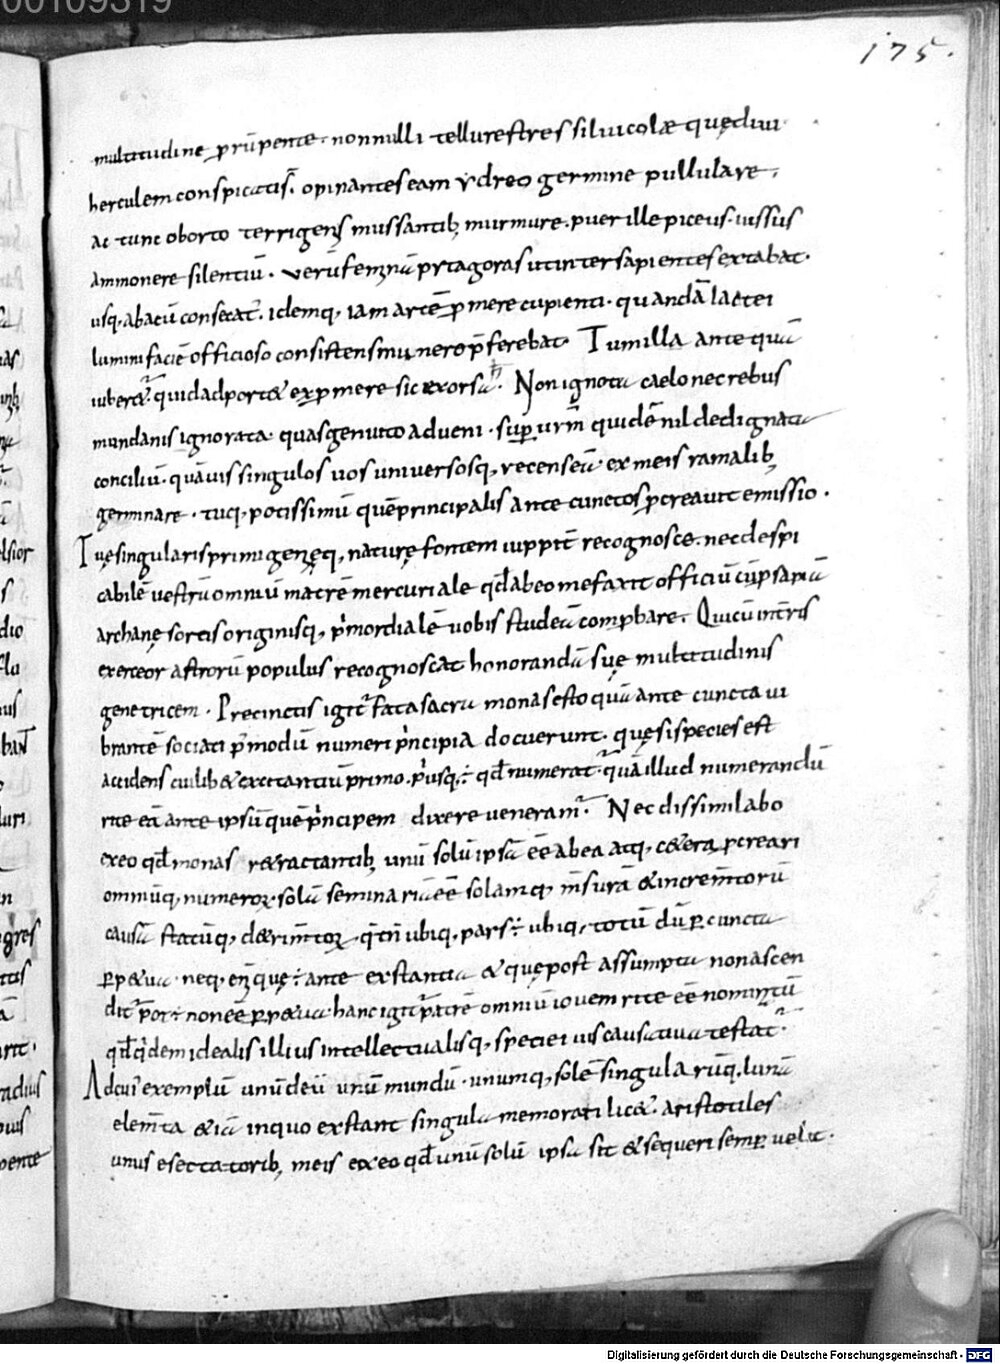 00109319
175.
multitudine prūpente. nonnulli tellurestres siluicolæ quędiui
herculem conspicatis̄. opinantes eam ydreo germine pullulare,
ac tunc oborto terrigenis mussantib; murmure. puer ille piceus. iussus
ammonere silentiū. verū feminā pytagoras ut inter sapientes extabat.
usq; abacū consecat̄. idemq; iam artē p̄mere cupienti. quandā lactei
lumini faciē officioso consistens munere p̄ferebat. Tum illa ante quā
iuberet̄. quid adportet exp̄mere sic exorsa. Non ignota caelo nec rebus
mundanis ignorata. quas genuit oadueni. sup ur̄m quidē nil dedignata
conciliū. quāuis singulos uos uniuersosq; recenseā ex meis ramalib;
germinare. tuq; potissimū quē principalis ante cunctos pcreauit emissio.
Tuę singularis primigenęq; naturę fontem iuppit̄ recognosce. nec despi
cabilē uestrū omniū matrē mercuriale qd̄ abeo me faxit officiū cū ipsa mā
archanę sortis originisq; p̄mordialē uobis studeā compbare. Qui cū int̄ris
exerceor astrorū populus recognoscat honorandā suę multitudinis
genetricem. Precinctis igit̄ fata sacra monas esto quā ante cuncta ui
brantē sociati p̄modū numeri p̄ncipia docuerunt. quę si species est
accidens cuilib& exxtantiū primo. p̄usq; ÷ qd̄ numerat. quā illud numerandū
rite eā ante ipsū quē p̄ncipem dixere ueneram̄. Nec dissimilabo
exeo qd̄ monas retractantib; unū solū ipsā eē abea atq; cetera pcreari
omniūq; numeroꝝ. solā seminariā eē solamq; m̄surā & increm̄torū
causā statūq; detrim̄toꝝ. q̄tn̄ ubiq; pars ÷ ubiq; totū dū p cuncta
ppetua. neq; en̄ quę ÷ ante exstantia & quę post assumpta non ascen
dit̄ pot ÷ non eē ppetua. hanc igit̄ patrē omniū iouem rite eē nominatū
qd̄ q̄dem idealis illius intellectualisq; speciei uis causatiua testat̄.
Ad cui exemplū unū deū unū mundū. unumq; solē singularūq; lunā
elem̄ta &iā in quo exstant singula memorari lic&. aristotiles
unus e sectatorib; meis ex eo qd̄ unū solū ipsa sit & se queri semp uelit.
Digitalisierung gefördert durch die Deutsche Forschungsgemeinschaft - DFG